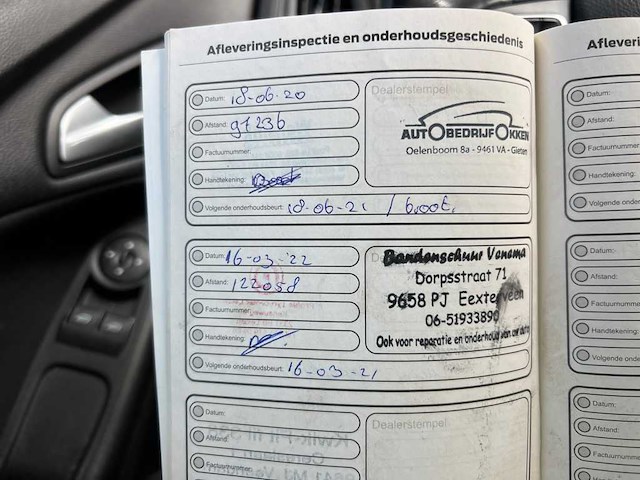 Afleveringsinspectie en onderhoudsgeschiedenis
Datum: 18-06-20
Afstand: 97236
Factuurnummer:
Handtekening:
Volgende onderhoudsbeurt: 18-06-21 / groot.
Dealerstempel
AUTOBEDRIJF OKKEN
Oelenboom 8a - 9461 VA - Gieten
Datum: 16-03-'22
Afstand: 122058
Factuurnummer:
Handtekening:
Volgende onderhoudsbeurt: 16-03-21
Bandenschuur Venema
Dorpsstraat 71
9658 PJ Eexterveen
06-51933890
Ook voor reparatie en onderhoud van uw auto
Datum:
Afstand:
Factuurnummer:
Dealerstempel
Kwik-Fit
Afleveri
Datum:
Afstand:
Factuurnummer
Handtekening:
Volgende onder
Datum:
Afstand:
Factuurnummer
Handtekening:
Volgende onder
Datum:
Afstand:
Factuurnummer